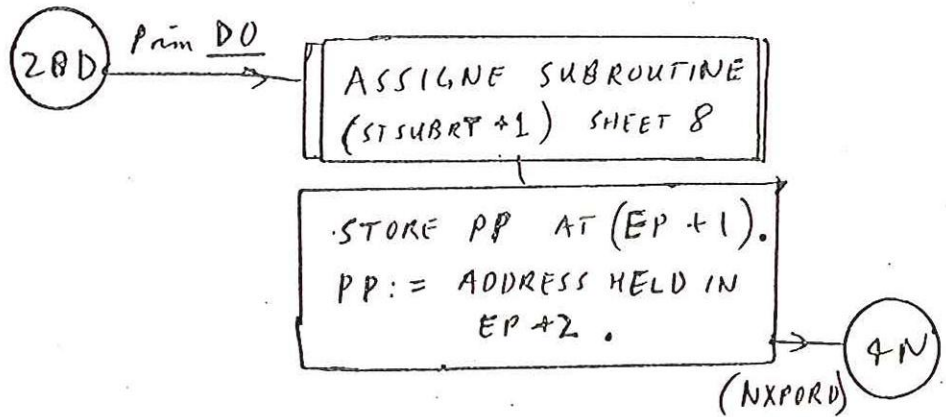 28D
Prim DO
ASSIGNE SUBROUTINE
(STSUBRT +1) SHEET 8
STORE PP AT (EP +1).
PP:= ADDRESS HELD IN
EP +2.
4N
(NXPORD)